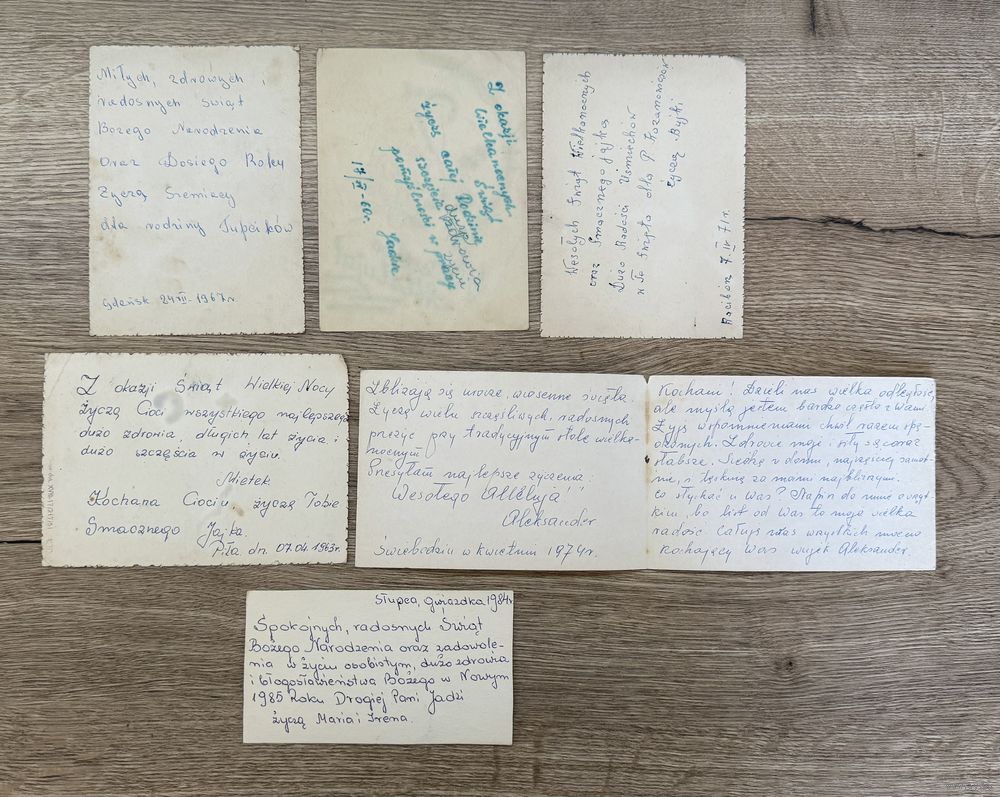 Miłych, zdrowych i
radosnych świąt
Bożego Narodzenia
oraz Dosiego Roku
Życzą Siemińscy
dla rodziny Tupcików
Gdańsk 24 XII - 1967 r.
Z okazji
Wielkanocnych
Świąt
życzę całej Rodzinie
zdrowia
szczęścia
pomyślności w pracy
Jadzia
Wesołych Świąt Wielkanocnych
oraz Smacznego Jajka
Dużo Radości Uśmiechów
w Te Święta dla P.
Życzą Bujki
Racibórz 7. IV 71 r.
Z okazji Świąt Wielkiej Nocy
Życzę Cioci wszystkiego najlepszego
dużo zdrowia, długich lat życia i
dużo szczęścia w życiu.
Mietek
Kochana Ciociu, życzę Tobie
Smacznego Jajka.
Piła dn. 07.04.1963r.
Zbliżają się urocze, wiosenne święta.
Życzę wielu szczęśliwych, radosnych
przeżyć przy tradycyjnym stole wielka-
nocnym
Przesyłam najlepsze życzenia:
"Wesołego Alleluja"
Aleksander
Świebodzin w kwietniu 1974 r.
Kochani! Dzieli nas wielka odległość,
ale myślą jestem bardzo często z Wami.
Żyję wspomnieniami chwil razem spę-
dzonych. Zdrowie moje i siły są coraz
słabsze. Siedzę w domu, najczęściej samot-
nie, i tęsknię za mami najbliższymi.
Co słychać u Was? Napisz do mnie o wszyst-
kim, bo list od Was to moja wielka
radość. Całuję Was wszystkich mocno
kochający Was wujek Aleksander.
Słupca, Gwiazdka 1984r
Spokojnych, radosnych Świąt
Bożego Narodzenia oraz zadowole-
nia w życiu osobistym, dużo zdrowia
i błogosławieństwa Bożego w Nowym
1985 Roku Drogiej Pani Jadzi
życzą Maria i Irena.